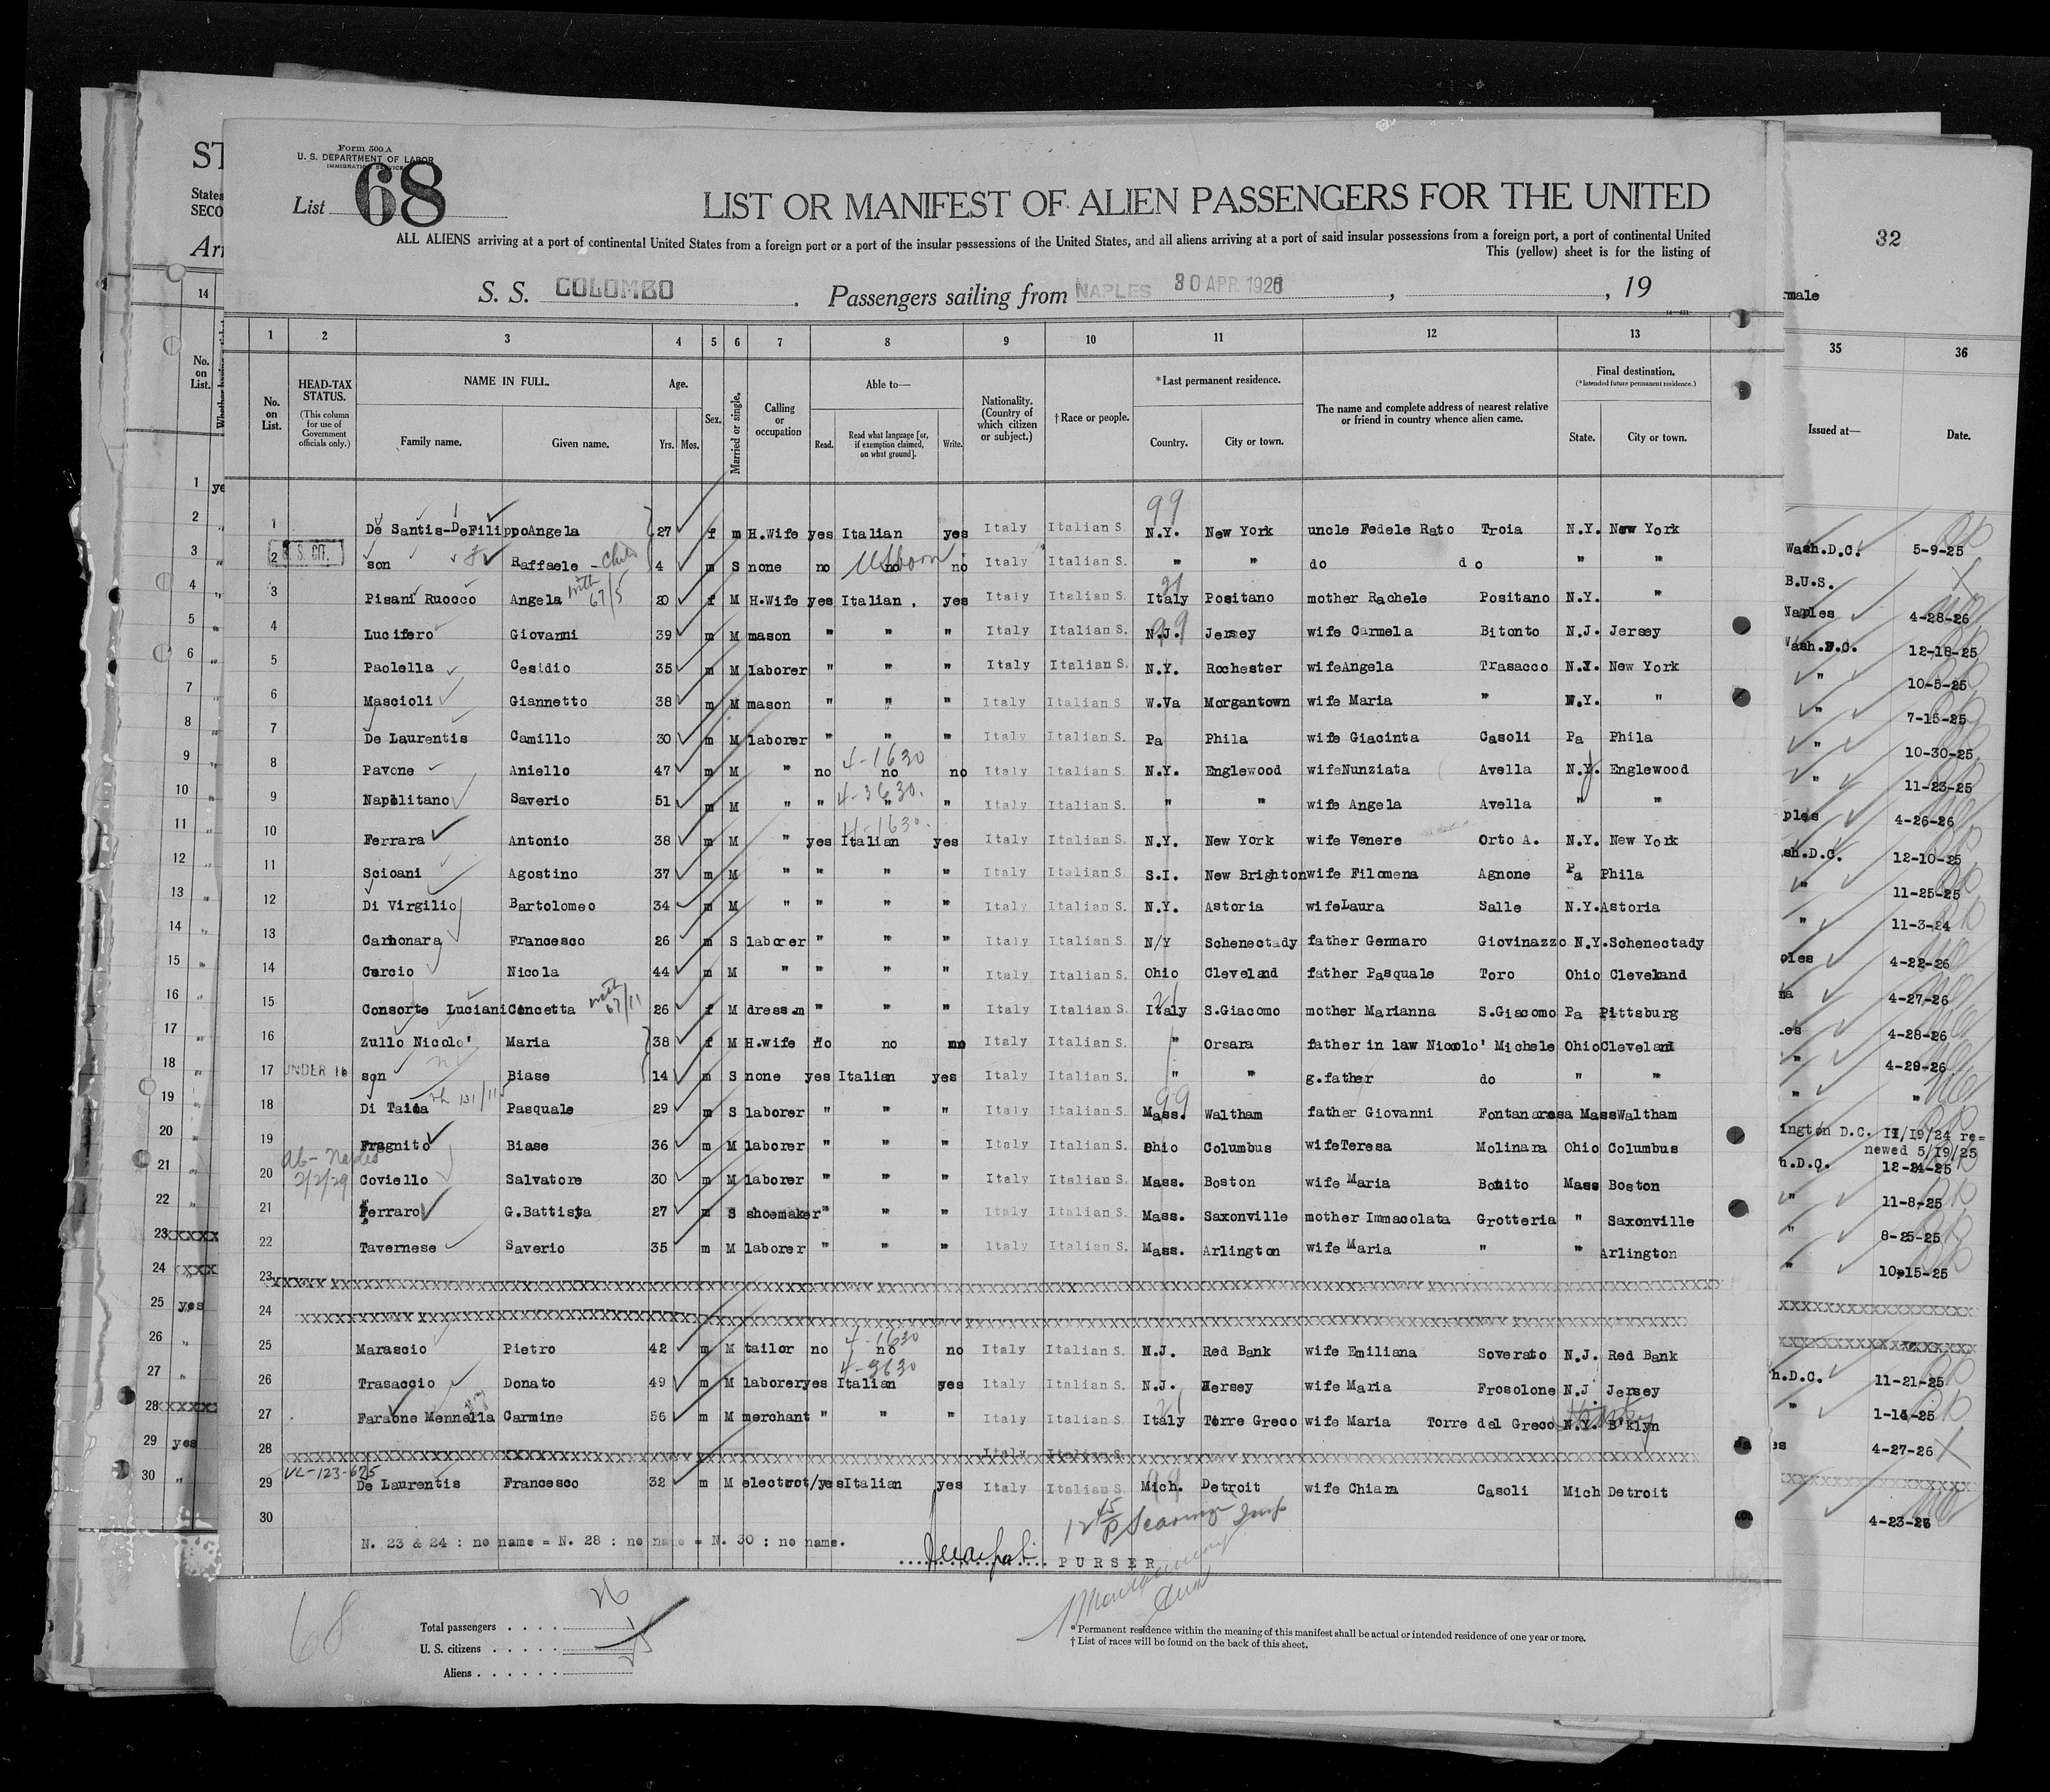 Form 500 A
U. S. DEPARTMENT OF LABOR
IMMIGRATION SERVICE
List 68
LIST OR MANIFEST OF ALIEN PASSENGERS FOR THE UNITED
ALL ALIENS arriving at a port of continental United States from a foreign port or a port of the insular possessions of the United States, and all aliens arriving at a port of said insular possessions from a foreign port, a port of continental United
This (yellow) sheet is for the listing of
S. S. COLOMBO Passengers sailing from NAPLES 30 APR 1926 , , 19
1 2 3 4 5 6 7 8 9 10 11 12 13
No. on List. HEAD-TAX STATUS. (This column for use of Government officials only.) NAME IN FULL. Family name. Given name. Age. Yrs. Mos. Sex. Married or single. Calling or occupation Able to— Read. Read what language [or, if exemption claimed, on what ground]. Write. Nationality. (Country of which citizen or subject.) †Race or people. *Last permanent residence. Country. City or town. The name and complete address of nearest relative or friend in country whence alien came. Final destination. (*Intended future permanent residence.) State. City or town.
1 De Santis-DeFilippo Angela 27 f m H.Wife yes Italian yes Italy Italian S. N.Y. New York uncle Fedele Rato Troia N.Y. New York
2 son Raffaele - child 4 m S none no no no Italy Italian S. " " do do " "
3 Pisani Ruocco Angela with 67/5 20 f M H.Wife yes Italian . yes Italy Italian S. Italy Positano mother Rachele Positano N.Y. "
4 Lucifero Giovanni 39 m M mason " " " Italy Italian S. N.J. Jersey wife Carmela Bitonto N.J. Jersey
5 Paolella Cesidio 35 m M laborer " " " Italy Italian S. N.Y. Rochester wifeAngela Trasacco N.Y. New York
6 Mascioli Giannetto 38 m M mason " " " Italy Italian S W.Va Morgantown wife Maria " N.Y. "
7 De Laurentis Camillo 30 m M laborer " " " Italy Italian S. Pa Phila wife Giacinta Casoli Pa Phila
8 Pavone Aniello 47 m M " no 4-1630 no no Italy Italian S. N.Y. Englewood wifeNunziata Avella N.Y. Englewood
9 Napolitano Saverio 51 m M " " 4-3630. " " Italy Italian S. " " wife Angela Avella " "
10 Ferrara Antonio 38 m M " yes 4-1630. Italian yes Italy Italian S. N.Y. New York wife Venere Orto A. N.Y. New York
11 Scioani Agostino 37 m M " " " " Italy Italian S. S.I. New Brighton wife Filomena Agnone Pa Phila
12 Di Virgilio Bartolomeo 34 m M " " " " Italy Italian S. N.Y. Astoria wifeLaura Salle N.Y. Astoria
13 Carbonara Francesco 26 m S laborer " " " Italy Italian S. N/Y Schenectady father Gennaro Giovinazzo N.Y. Schenectady
14 Curcio Nicola 44 m M " " " " Italy Italian S. Ohio Cleveland father Pasquale Toro Ohio Cleveland
15 Consorte Luciani Concetta with 67/11 26 f M dress.m " " " Italy Italian S. Italy S.Giacomo mother Marianna S.Giacomo Pa Pittsburg
16 Zullo Nicolo' Maria 38 f M H.wife No no no Italy Italian S. " Orsara father in law Nicolo' Michele Ohio Cleveland
17 UNDER 16 son Biase 14 m S none yes Italian yes Italy Italian S. " " g.father do " "
18 Di Taiola Pasquale 29 m S laborer " " " Italy Italian S. Mass. Waltham father Giovanni Fontanarosa Mass Waltham
19 Fragnito Biase 36 m M laborer " " " Italy Italian S. Ohio Columbus wifeTeresa Molinara Ohio Columbus
20 2/2/29 Coviello Salvatore 30 m M laborer " " " Italy Italian S. Mass. Boston wife Maria Bonito Mass Boston
21 Ferraro G.Battista 27 m S shoemaker " " " Italy Italian S. Mass. Saxonville mother Immacolata Grotteria " Saxonville
22 Tavernese Saverio 35 m M laborer " " " Italy Italian S. Mass. Arlington wife Maria " " Arlington
23
24
25 Marascio Pietro 42 m M tailor no 4-1630 no no Italy Italian S. N.J. Red Bank wife Emiliana Soverato N.J. Red Bank
26 Trasaccio Donato 49 m M laborer yes 4-3630 Italian yes Italy Italian S. N.J. Jersey wife Maria Frosolone N.J Jersey
27 Faraone Mennella Carmine 56 m M merchant " " " Italy Italian S. Italy Torre Greco wife Maria Torre del Greco N.Y. B'klyn
28 Italy Italian S.
29 VL-123-675 De Laurentis Francesco 32 m M electrct/yes Italian yes Italy Italian S Mich. Detroit wife Chiara Casoli Mich Detroit
30
N. 23 & 24 : no name = N. 28 : no name = N. 30 : no name.
PURSER
68
Total passengers
U. S. citizens
Aliens
* Permanent residence within the meaning of this manifest shall be actual or intended residence of one year or more.
† List of races will be found on the back of this sheet.
32
35 36
Issued at— Date.
Wash.D.C. 5-9-25
B.U.S.
Naples 4-28-26
Wash.D.C. 12-18-25
" 10-5-25
" 7-15-25
" 10-30-25
" 11-23-25
ples 4-26-26
sh.D.C. 12-10-25
" 11-25-25
" 11-3-24
ples 4-22-26
4-27-26
les 4-28-26
" 4-29-26
" "
ington D.C. 11/19/24 re=
newed 5/19/25
h.D.C. 12-24-25
" 11-8-25
" 8-25-25
" 10-15-25
h.D.C. 11-21-25
" 1-14-25
es 4-27-26
4-23-26